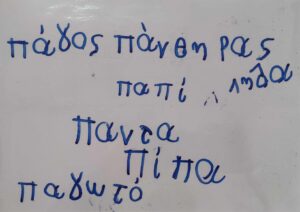 πάγος πάνθηρας
παπί πηδα
παντα
πίπα
παγωτό